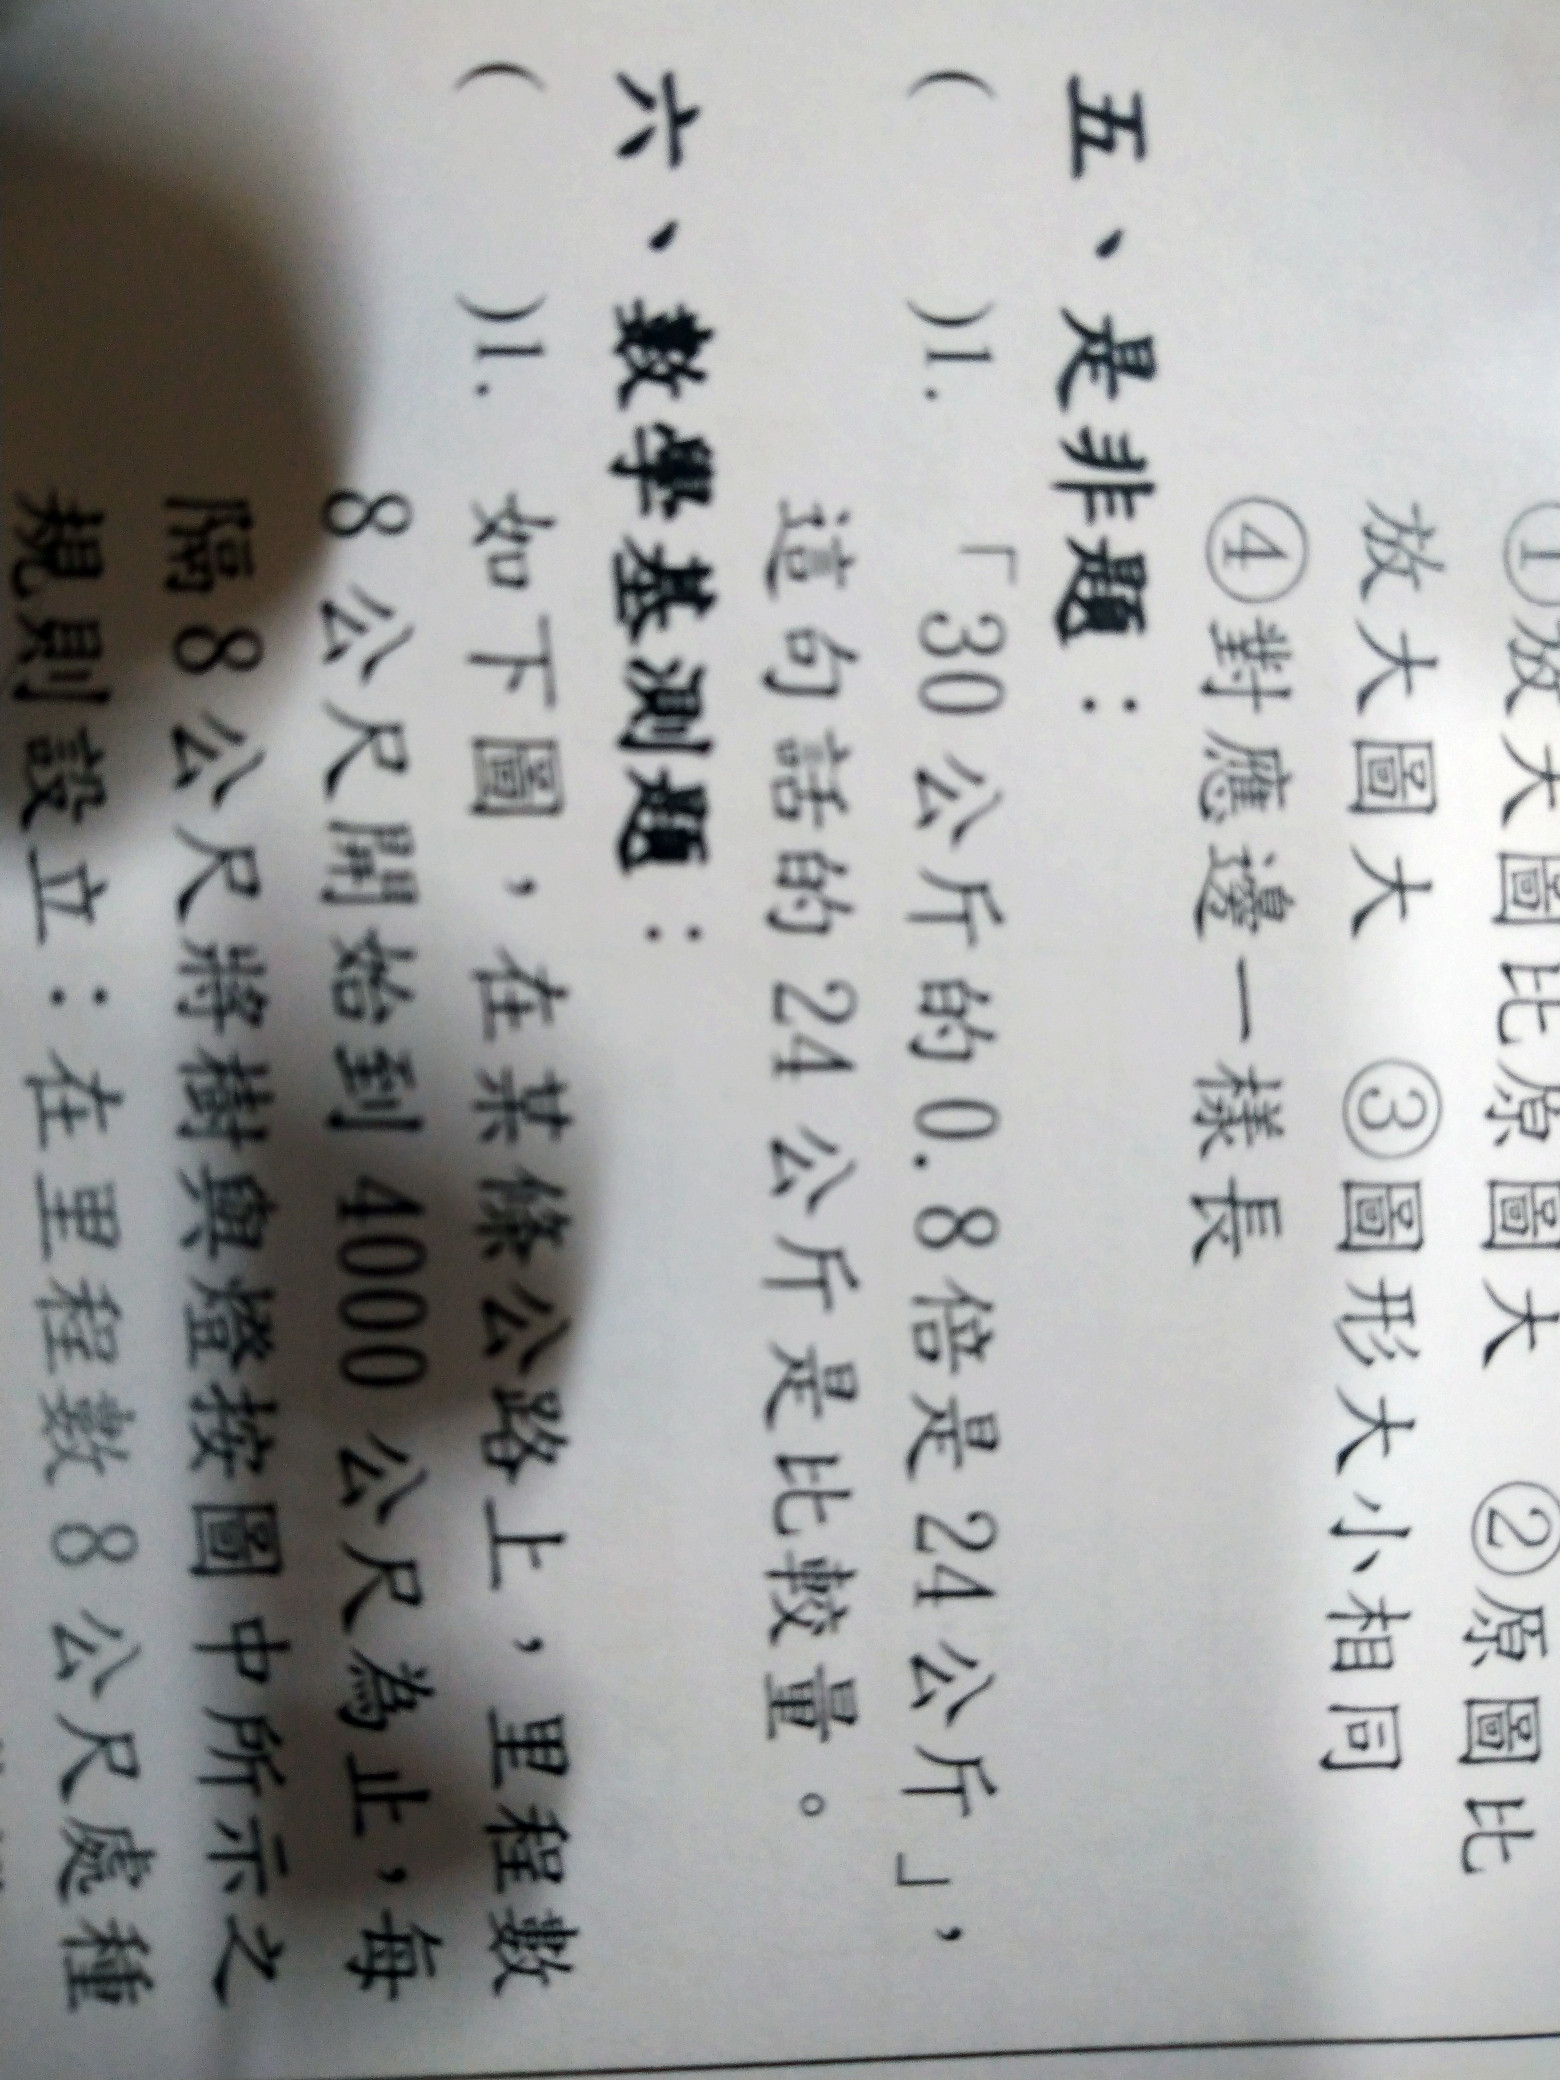 ①放大圖比原圖大 ②原圖比
放大圖大 ③圖形大小相同
④對應邊一樣長
五、是非題：
( )1. 「30公斤的0.8倍是24公斤」，
這句話的24公斤是比較量。
六、數學基測題：
( )1. 如下圖，在某條公路上，里程數
8公尺開始到4000公尺為止，每
隔8公尺將樹與燈按圖中所示之
規則設立：在里程數8公尺處種